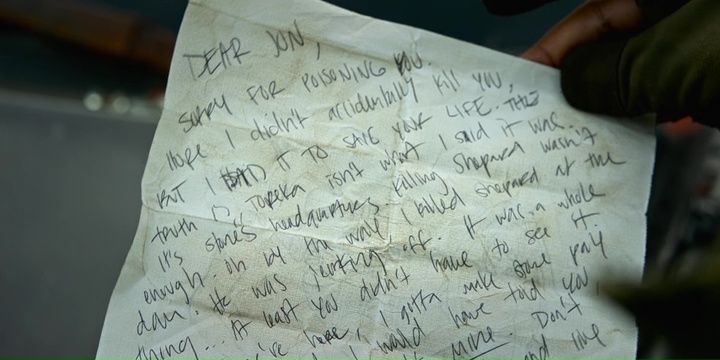 DEAR JUN,
SORRY FOR POISONING YOU.
HOPE I didn't accidentally kill you,
BUT I HAD IT TO SAVE YOUR LIFE. THE
truth is, Topeka isn't what I said it was.
It's stone's headquarters. Killing Shepard wasn't
enough. Oh by the way I killed Shepard at the
dam. He was jerking off. It was a whole
thing... At least you didn't have to see it.
you're here, I gotta make Stone pay
I would have told you,
mine. Don't
and live